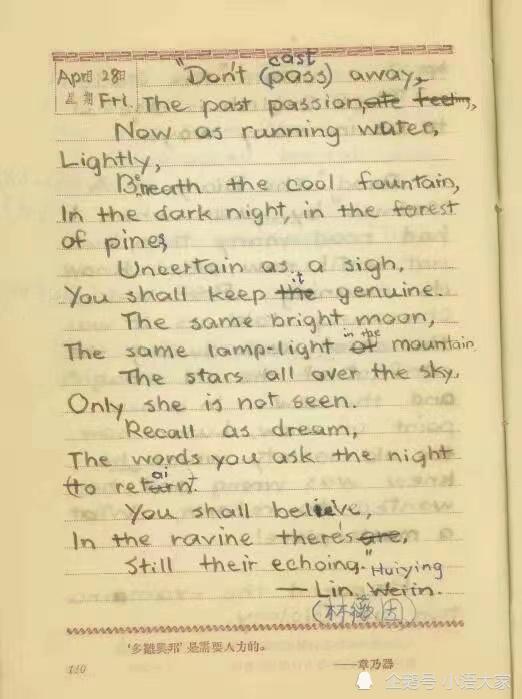 cast
April 28日 "Don't (pass) away,
星期 Fri. The past passion,ate feeling,
Now as running water,
Lightly,
Beneath the cool fountain,
In the dark night, in the forest
of pines,
Uncertain as a sigh,
it
You shall keep the genuine.
The same bright moon,
in the
The same lamp-light of mountain
The stars all over the sky,
Only she is not seen.
Recall as dream,
The words you ask the night
ai
(to return).
You shall believe,
In the ravine there's are,
Still their echoing."
Huiying
— Lin Weiin.
(林薇因)
'多难兴邦'是需要人力的。
140 ——章乃器
企鹅号 小语大家